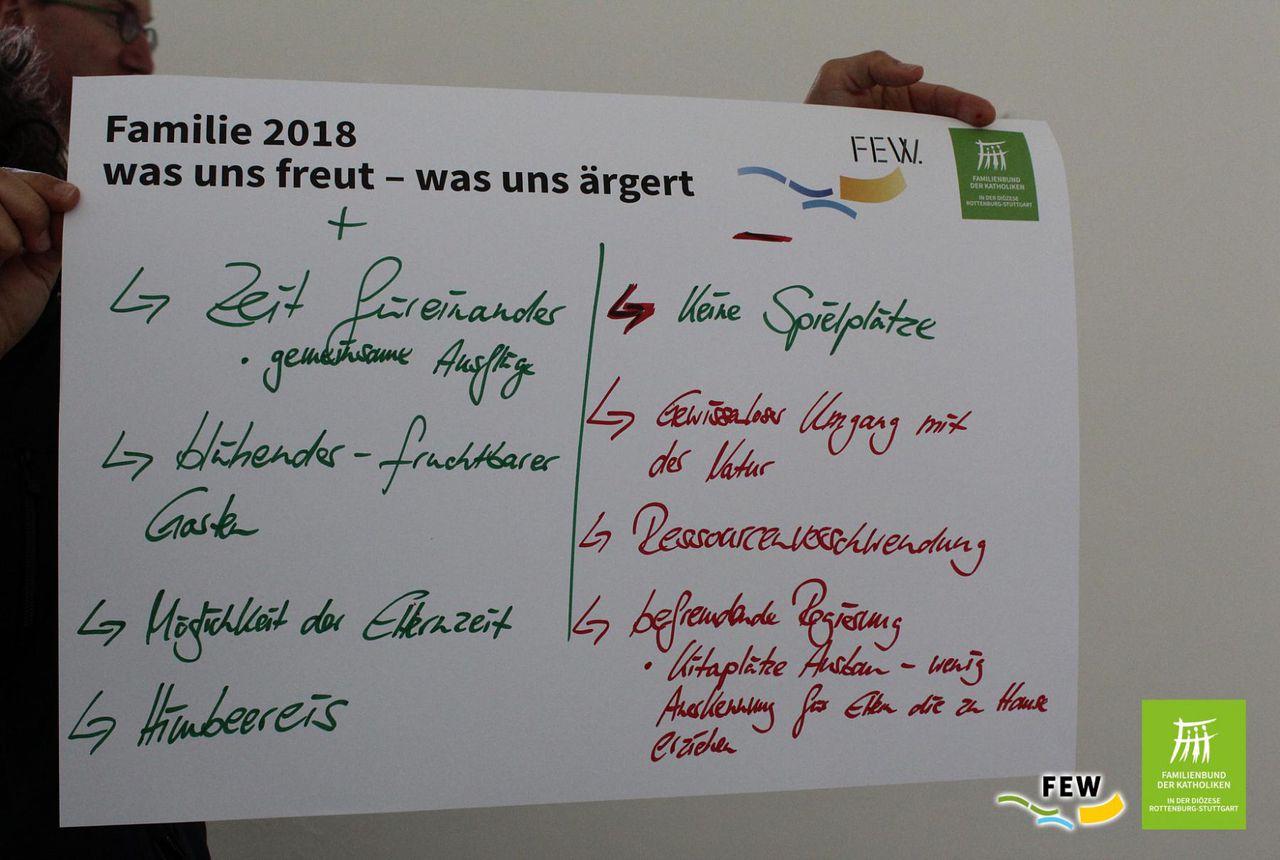 Familie 2018
was uns freut – was uns ärgert
FEW.
FAMILIENBUND
DER KATHOLIKEN
IN DER DIÖZESE
ROTTENBURG-STUTTGART
+
↳ Zeit füreinander
• gemeinsame Ausflüge
↳ blühender - fruchtbarer
Garten
↳ Möglichkeit der Elternzeit
↳ Himbeereis
–
↳ Keine Spielplätze
↳ Gewissenloser Umgang mit
der Natur
↳ Ressourcenverschwendung
↳ befremdende Regierung
• Kitaplätze Ausbau - wenig
Anerkennung für Eltern die zu Hause
erziehen
FEW
FAMILIENBUND
DER KATHOLIKEN
IN DER DIÖZESE
ROTTENBURG-STUTTGART